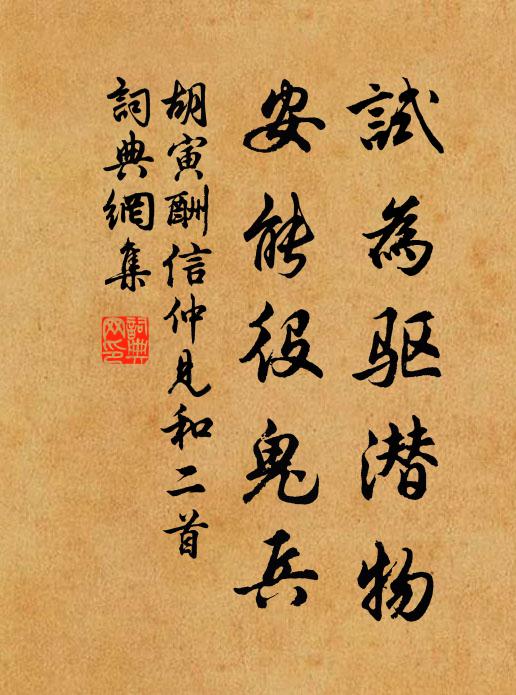 試為驱潜物
安能役鬼兵
胡寅酬信仲見和二首
詞典網集
詞典
网印